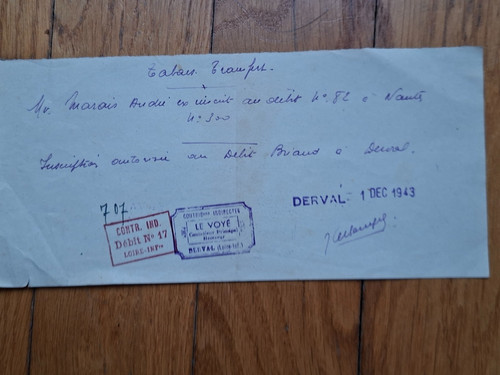 Tabacs Transfert.
Mr. Marais André ex inscrit au débit Nº 82 à Nantes
Nº 300
Inscription autorisée au Débit Briand à Derval.
707
CONTR. IND.
Débit Nº 17
LOIRE-INFre
CONTRIBons INDIRECTES
LE VOYÉ
DERVAL (Loire-Inf.)
DERVAL 1 DEC 1943